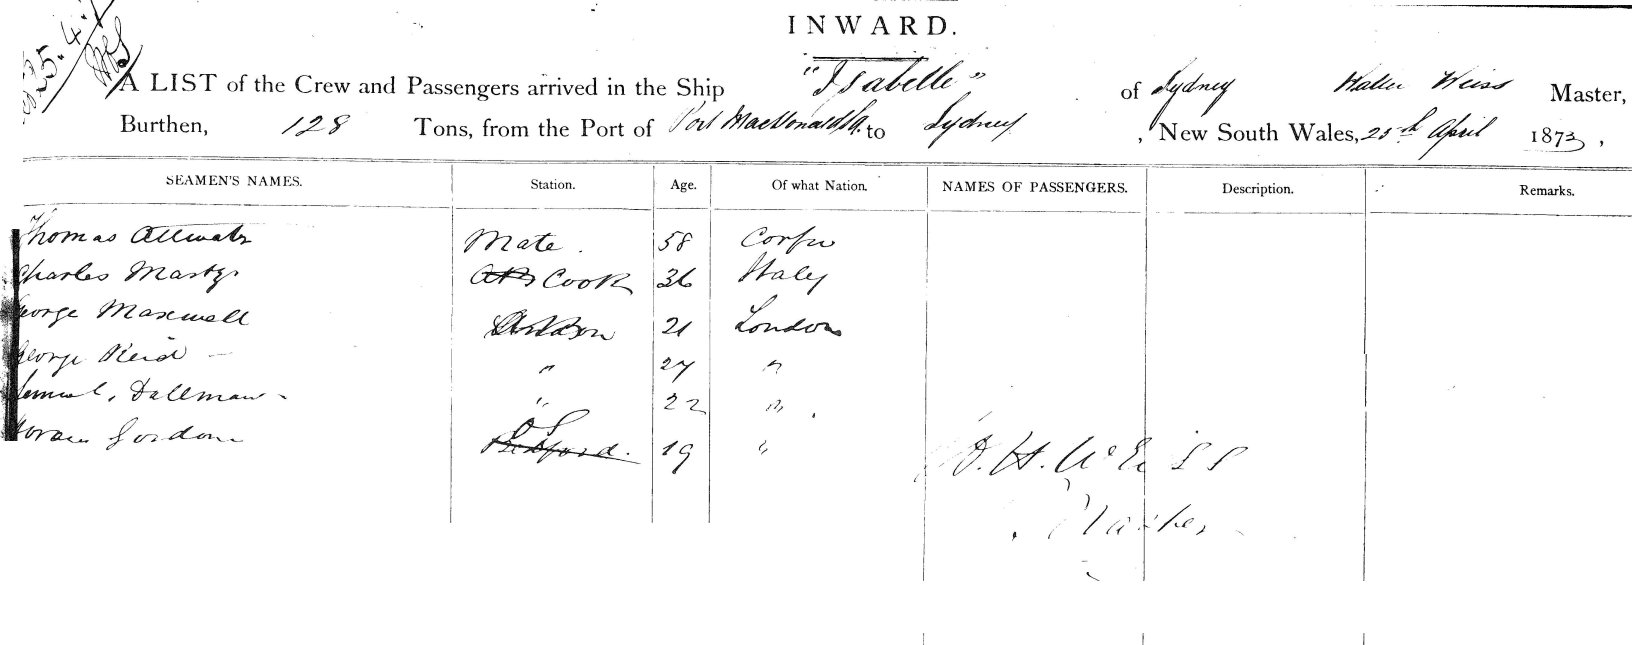 INWARD.
25.4.7
A LIST of the Crew and Passengers arrived in the Ship "Isabelle" of Sydney Walter Weiss Master,
Burthen, 128 Tons, from the Port of Port MacDonald to Sydney, New South Wales, 25th April 1873,
SEAMEN'S NAMES. Station. Age. Of what Nation. NAMES OF PASSENGERS. Description. Remarks.
Thomas Attwater Mate. 58 Corfu
Charles AB Cook 36 Italy
George Maxwell 21 London
George Reid 27 "
Samuel Dallman " 22 "
Gordon OS Bedford. 19 "
Weiss
Master